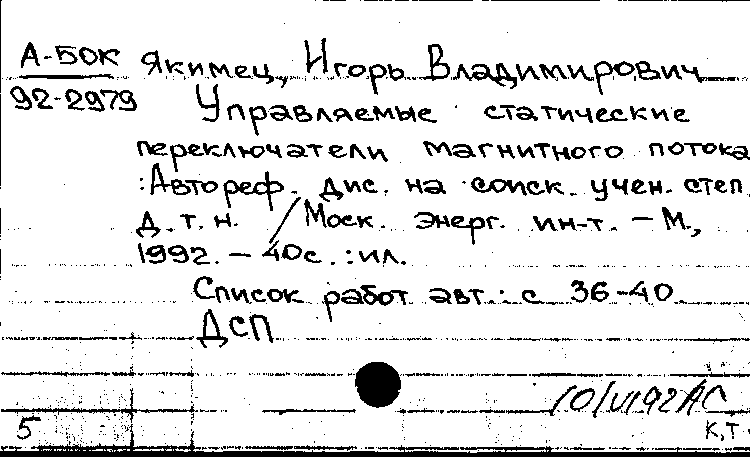 А-БОК Якимец, Игорь Владимирович
92-2979 Управляемые статические
переключатели магнитного потока
: Автореф. дис. на соиск. учен. степ.
д.т.н. / Моск. энерг. ин-т. – М.,
1992. – 40с. : ил.
Список работ авт.: с 36-40.
ДСП
10/VI92 АС
5 К,Т